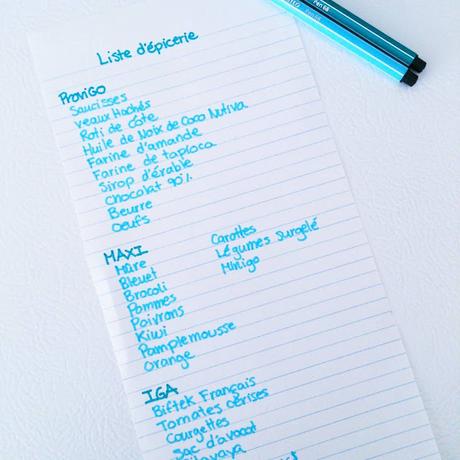 Pen 68
Liste d'épicerie
ProviGO
Saucisses
Veaux Hachés
Roti de Côte
Huile de Noix de Coco Nutiva
Farine d'amande
Farine de tapioca
Sirop d'érable
Chocolat 90%
Beurre
Oeufs
MAXI
Mûre
Bleuet
Brocoli
Pommes
Poivrons
Kiwi
Pamplemousse
Orange
Carottes
Légumes surgelé
Minigo
IGA
Biftek Français
Tomates cérises
Courgettes
Sac d'avocat